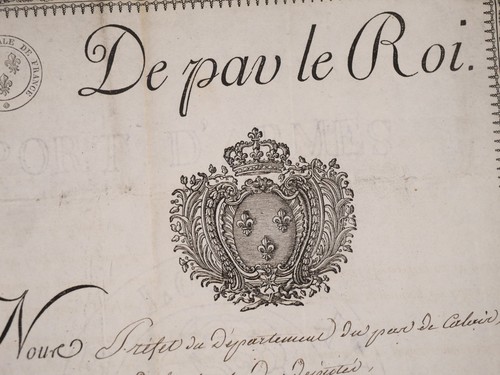 ALE DE FRANCE
De par le Roi.
PORT D'ARMES
Nous Préfet du département du pas de Calais
député,